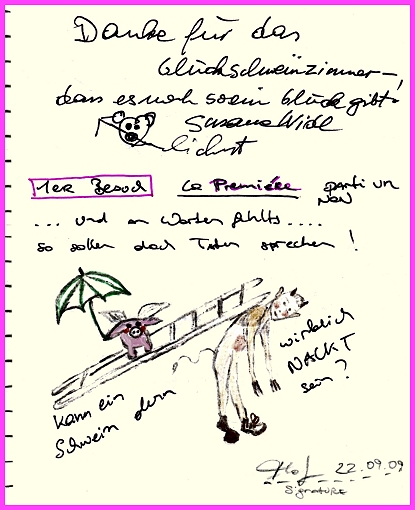 Danke für das
Glücksschweinzimmer –,
dass es noch so ein Glück gibt!
1er Besuch La Première
NON
... und an Worten fehlts ....
so sollen doch Taten sprechen !
kann ein
Schwein denn
wirklich
NACKT
sein ?
22.09.09
SIGNATURE